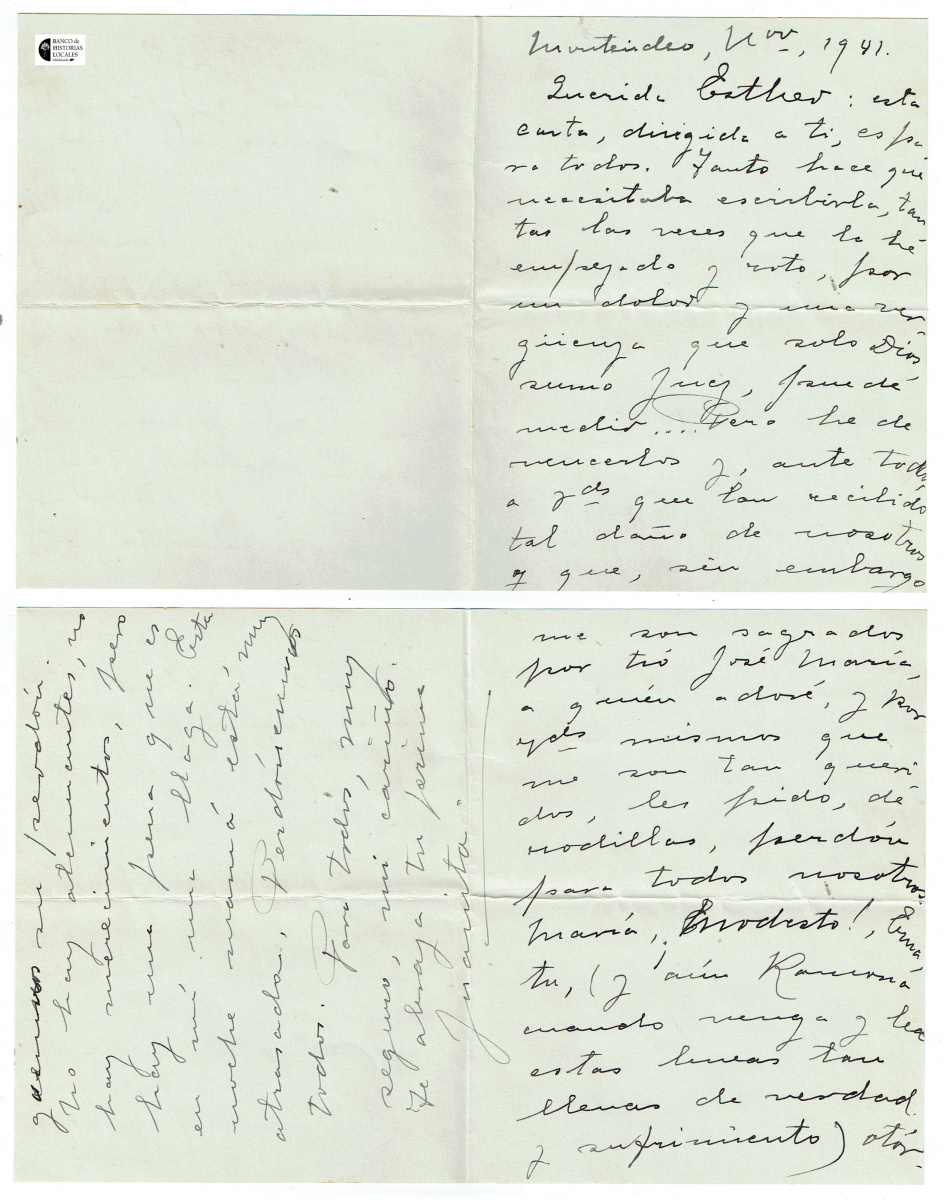 BANCO de
HISTORIAS
LOCALES
Montevideo, Nov, 1941.
Querida Esther: esta
carta, dirigida a ti, es pa
ra todos. Tanto hace que
necesitaba escribirla, tan
tas las veces que la hé
empezado y roto, por
un dolor y una ver
güenza que solo Dios
sumo Juez, puede
medir.... Pero he de
vencerlos y, ante todo
a yds que han recibido
tal daño de nosotros
y que, sin embargo
me son sagrados
por tió José María,
a quién adoré, y por
yds mismos que
me son tan queri
dos, les pido, de
rodillas, perdón
para todos nosotros.
María, Modesto!, Ema
tu, (y aún Ramona
cuando venga y lea
estas lineas tan
llenas de verdad
y sufrimiento) otór-
guennos su perdón.
No hay atenuantes, no
hay merecimientos, pero
hay una pena que es
en mí una llaga. Esta
noche mamá está, muy
atrasada. Perdónennos
todos. Para todos, muy
seguro, mi cariño.
Te abraza tu prima
Juanita.